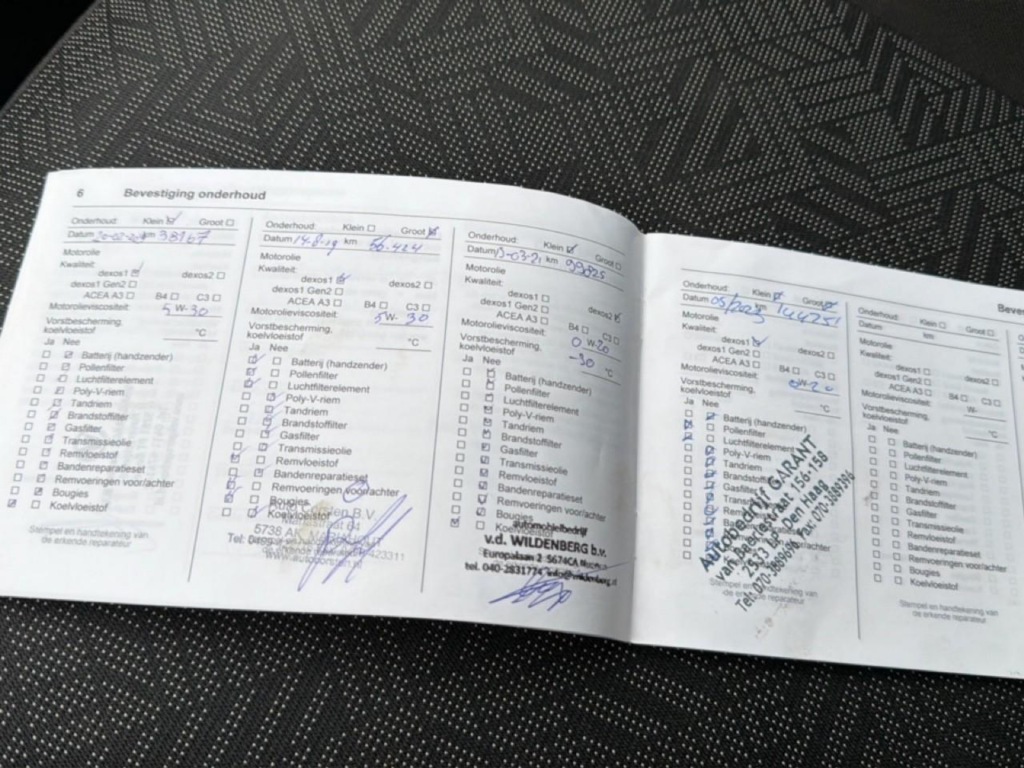 6 Bevestiging onderhoud
Onderhoud: Klein Groot
Datum km 38167
Motorolie
Kwaliteit:
dexos1 dexos2
dexos1 Gen2
ACEA A3 B4 C3
Motorolieviscositeit: 5 W- 30
Vorstbescherming, koelvloeistof °C
Ja Nee
Batterij (handzender)
Pollenfilter
Luchtfilterelement
Poly-V-riem
Tandriem
Brandstoffilter
Gasfilter
Transmissieolie
Remvloeistof
Bandenreparatieset
Remvoeringen voor/achter
Bougies
Koelvloeistof
Stempel en handtekening van
de erkende reparateur
Onderhoud: Klein Groot
Datum 14-8-19 km 66-424
Motorolie
Kwaliteit:
dexos1 dexos2
dexos1 Gen2
ACEA A3 B4 C3
Motorolieviscositeit: 5W- 30
Vorstbescherming,
koelvloeistof °C
Ja Nee
Batterij (handzender)
Pollenfilter
Luchtfilterelement
Poly-V-riem
Tandriem
Brandstoffilter
Gasfilter
Remvloeistof
Bandenreparatieset
Remvoeringen voor/achter
Bougies
Koelvloeistof
B.V.
64
5738
Tel:
423311
Onderhoud: Klein Groot
Datum 13-03-21 km 99825
Motorolie
Kwaliteit:
dexos1 dexos2
dexos1 Gen2
ACEA A3 B4 C3
Motorolieviscositeit: 0 W20
Vorstbescherming,
koelvloeistof -30 °C
Ja Nee
Batterij (handzender)
Pollenfilter
Luchtfilterelement
Poly-V-riem
Tandriem
Brandstoffilter
Gasfilter
Transmissieolie
Remvloeistof
Bandenreparatieset
Remvoeringen voor/achter
Bougies
Koelvloeistof
automobielbedrijf
v.d. WILDENBERG b.v.
Europalaan 2 5674CA
tel. 040-2831774
Onderhoud: Klein Groot
Datum 05/2023 km 144251
Motorolie
Kwaliteit:
dexos1 dexos2
dexos1 Gen2
ACEA A3 B4 C3
Motorolieviscositeit: 0W-20
Vorstbescherming,
koelvloeistof °C
Ja Nee
Batterij (handzender)
Pollenfilter
Luchtfilterelement
Poly-V-riem
Tandriem
Brandstoffilter
Gasfilter
Autobedrijf GARANT
van Beerlestraat 156-158
Den Haag
Stempel en handtekening van
de erkende reparateur
Onderhoud: Klein Groot
Datum km
Motorolie
Kwaliteit:
dexos1 dexos2
dexos1 Gen2
ACEA A3 B4 C3
Motorolieviscositeit: W-
Vorstbescherming,
koelvloeistof °C
Ja Nee
Batterij (handzender)
Pollenfilter
Luchtfilterelement
Poly-V-riem
Tandriem
Brandstoffilter
Gasfilter
Transmissieolie
Remvloeistof
Bandenreparatieset
Remvoeringen voor/achter
Bougies
Koelvloeistof
Stempel en handtekening van
de erkende reparateur